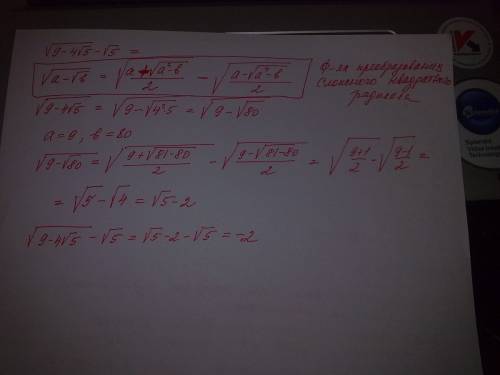 √(9-4√5) - √5 =
√(a-√b) = √((a+√(a²-b))/2) - √((a-√(a²-b))/2)
Ф-ла преобразования
сложного квадратного
радикала
√(9-4√5) = √(9-√(4²·5)) = √(9-√80)
a=9, b=80
√(9-√80) = √((9+√(81-80))/2) - √((9-√(81-80))/2) = √((9+1)/2) - √((9-1)/2) =
= √5 - √4 = √5 - 2
√(9-4√5) - √5 = √5 - 2 - √5 = -2